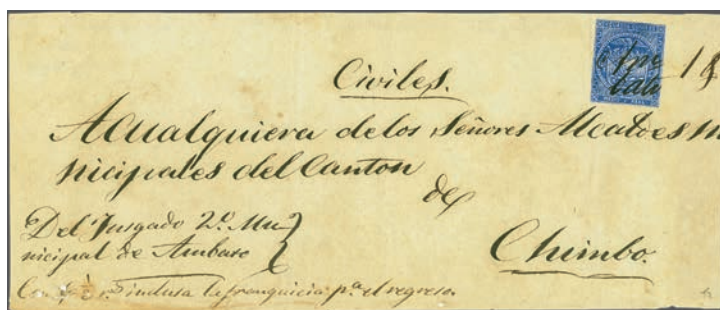 Civiles.
A cualquiera de los Señores Alcaldes Mu
nicipales del Canton
de
Del Jusgado 2º. Mu
nicipal de Ambato
Chimbo.
inclusa la franquicia pª. el regreso.